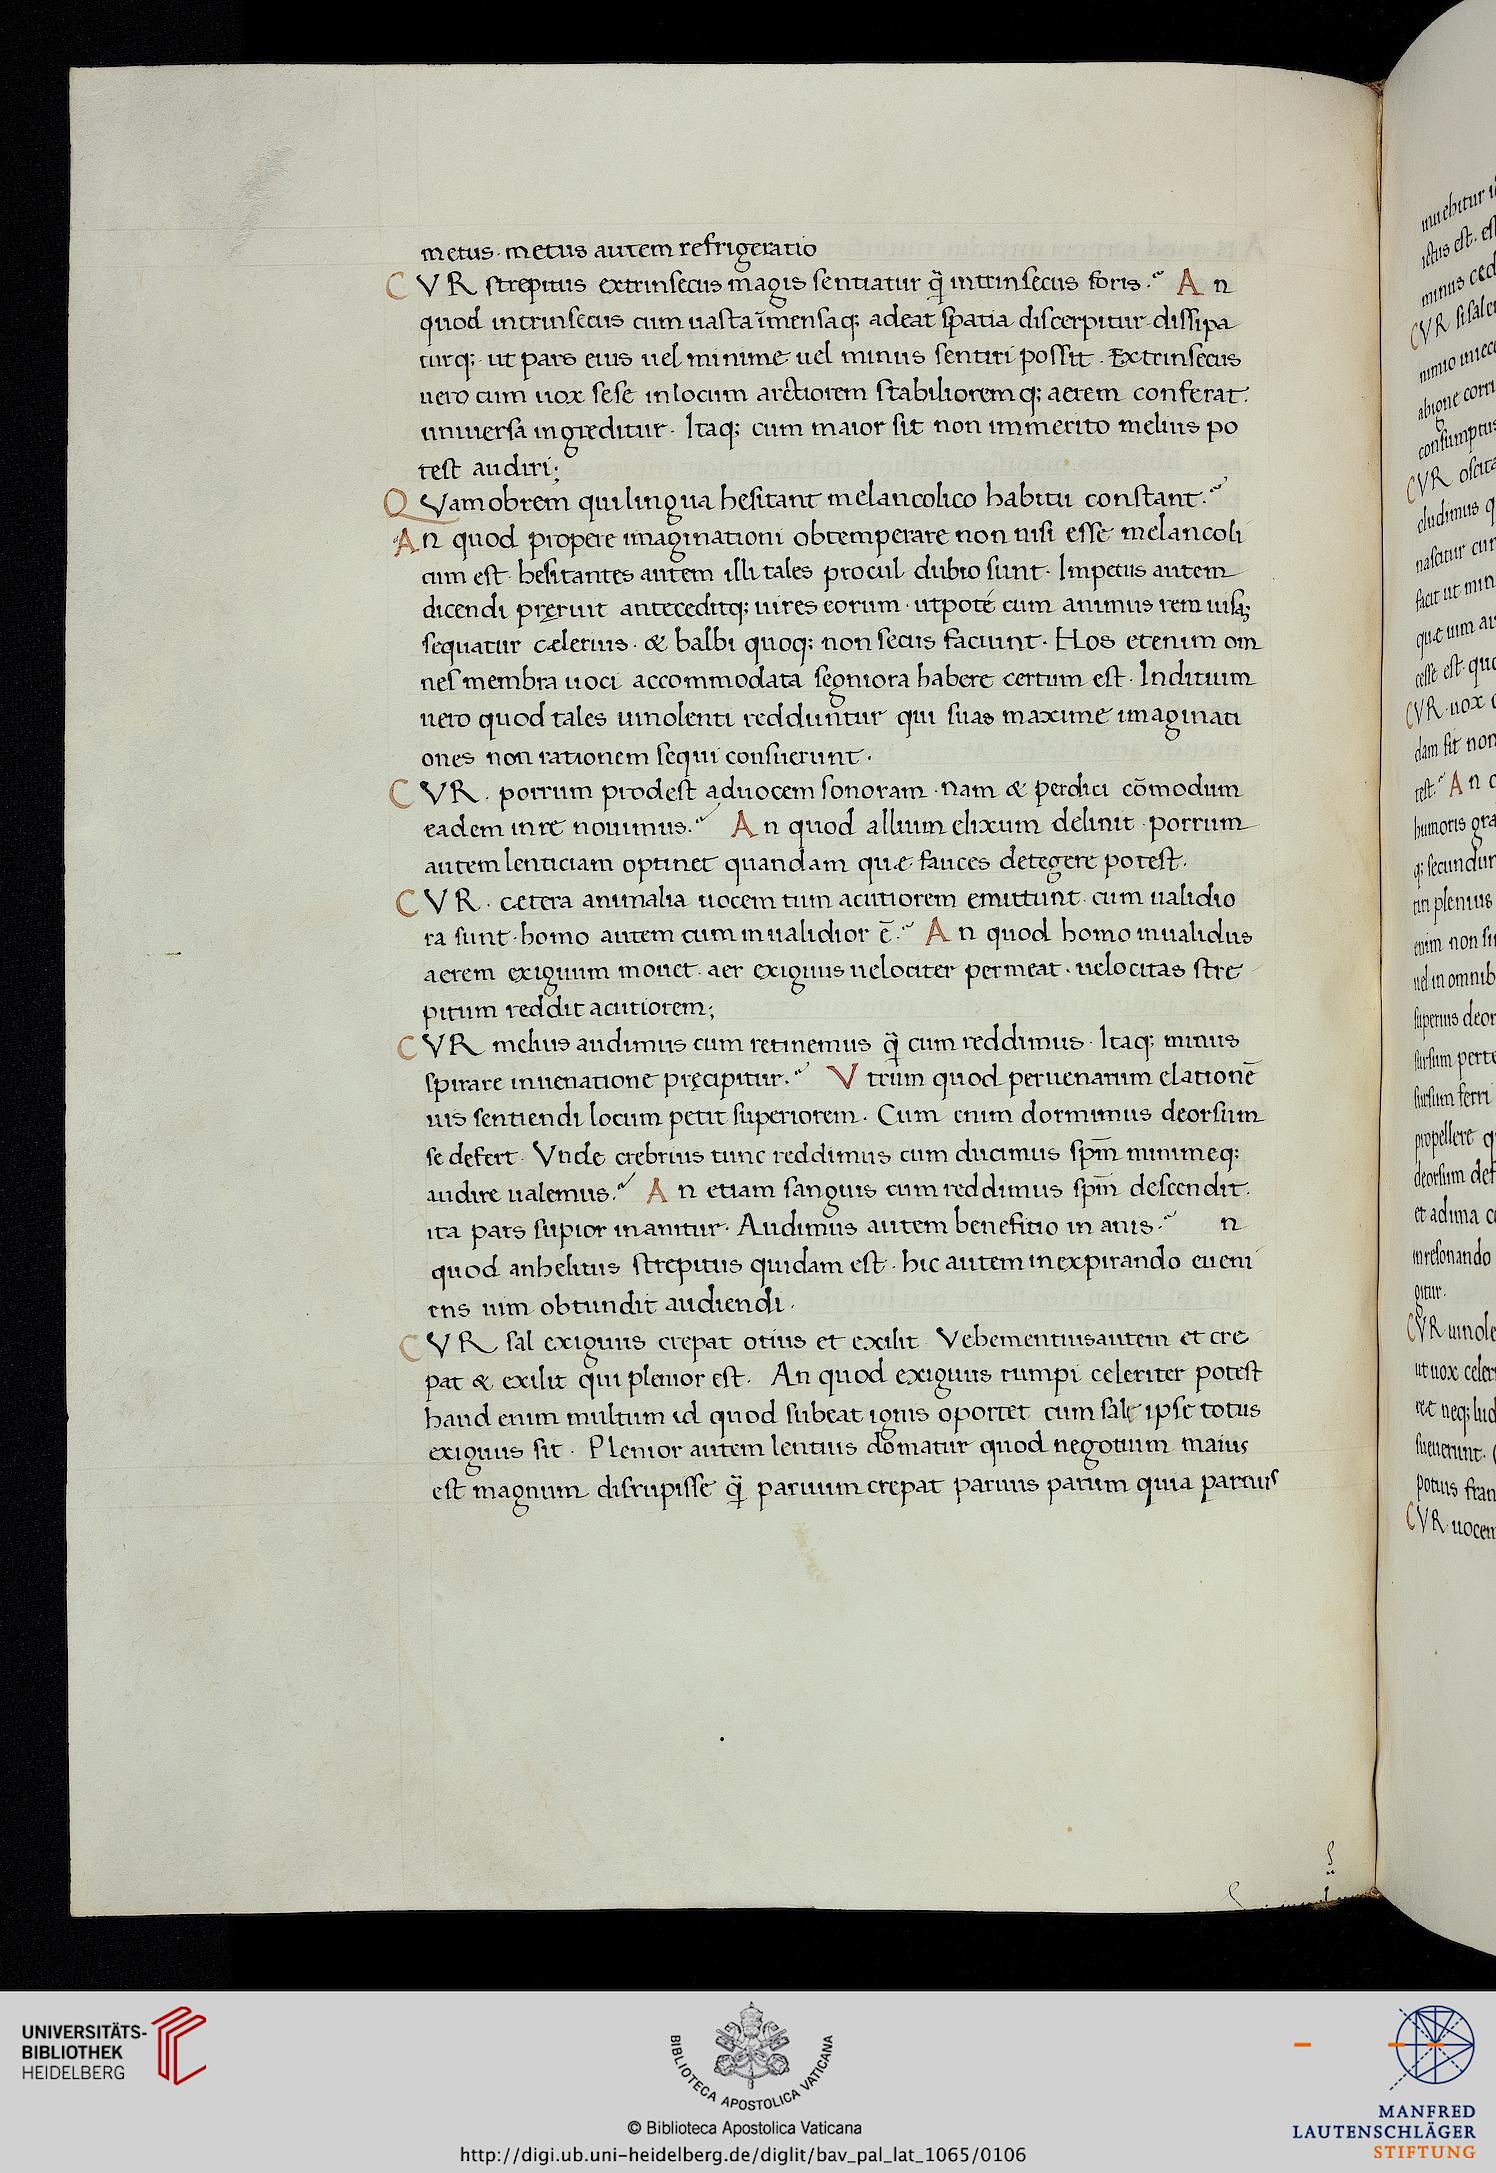 metus · metus autem refrigeratio
CVR strepitus extrinsecus magis sentiatur q̃ intrinsecus foris. An
quod intrinsecus cum uasta īmensaq; adeat spatia discerpitur dissipa
turq; ut pars eius uel minime uel minus sentiri possit. Extrinsecus
uero cum uox sese in locum arctiorem stabilioremq; aerem conferat.
uniuersa ingreditur. Itaq; cum maior sit non immerito melius po
test audiri;
QVamobrem qui lingua hesitant melancolico habitu constant.
An quod propere imaginationi obtemperare non nisi esse melancoli
cum est. hesitantes autem illi tales procul dubio sunt. Impetus autem
dicendi pręruit anteceditq; uires eorum · utpote cum animus rem uisāq;
sequatur celerius · & balbi quoq; non secus faciunt. Hos etenim om
nes membra uoci accommodata segniora habere certum est. Inditium
uero quod tales uinolenti redduntur qui suas maxime imaginati
ones non rationem sequi consuerunt.
CVR. porrum prodest ad uocem sonoram · nam & perdici cōmodum
eadem in re nouimus. An quod allium elixum delinit · porrum
autem lenticiam optinet quandam quæ fauces detegere potest.
CVR · cetera animalia uocem tum acutiorem emittunt · cum ualidio
ra sunt · homo autem cum inualidior ē. An quod homo inualidus
aerem exiguum mouet · aer exiguus uelociter permeat · uelocitas stre
pitum reddit acutiorem;
CVR melius audimus cum retinemus q̃ cum reddimus · Itaq; minus
spirare in uenatione pręcipitur. Vtrum quod per uenarum elationē
uis sentiendi locum petit superiorem. Cum enim dormimus deorsum
se defert. Vnde crebrius tunc reddimus cum ducimus spm̄ minimeq;
audire ualemus. An etiam sanguis cum reddimus spm̄ descendit.
ita pars supior inanitur. Audimus autem benefitio in anis. n
quod anhelitus strepitus quidam est · hic autem in expirando eueni
ens uim obtundit audiendi.
CVR sal exiguus crepat otius et exilit Vehementius autem et cre
pat & exilit qui plenior est. An quod exiguus rumpi celeriter potest
haud enim multum id quod subeat ignis oportet cum salę ipse totus
exiguus sit. Plenior autem lentius domatur quod negotium maius
est magnum disrupisse q̃ paruum crepat paruus parum quia paruus
UNIVERSITÄTS-
BIBLIOTHEK
HEIDELBERG
BIBLIOTECA APOSTOLICA VATICANA
© Biblioteca Apostolica Vaticana
http://digi.ub.uni-heidelberg.de/diglit/bav_pal_lat_1065/0106
MANFRED
LAUTENSCHLÄGER
STIFTUNG